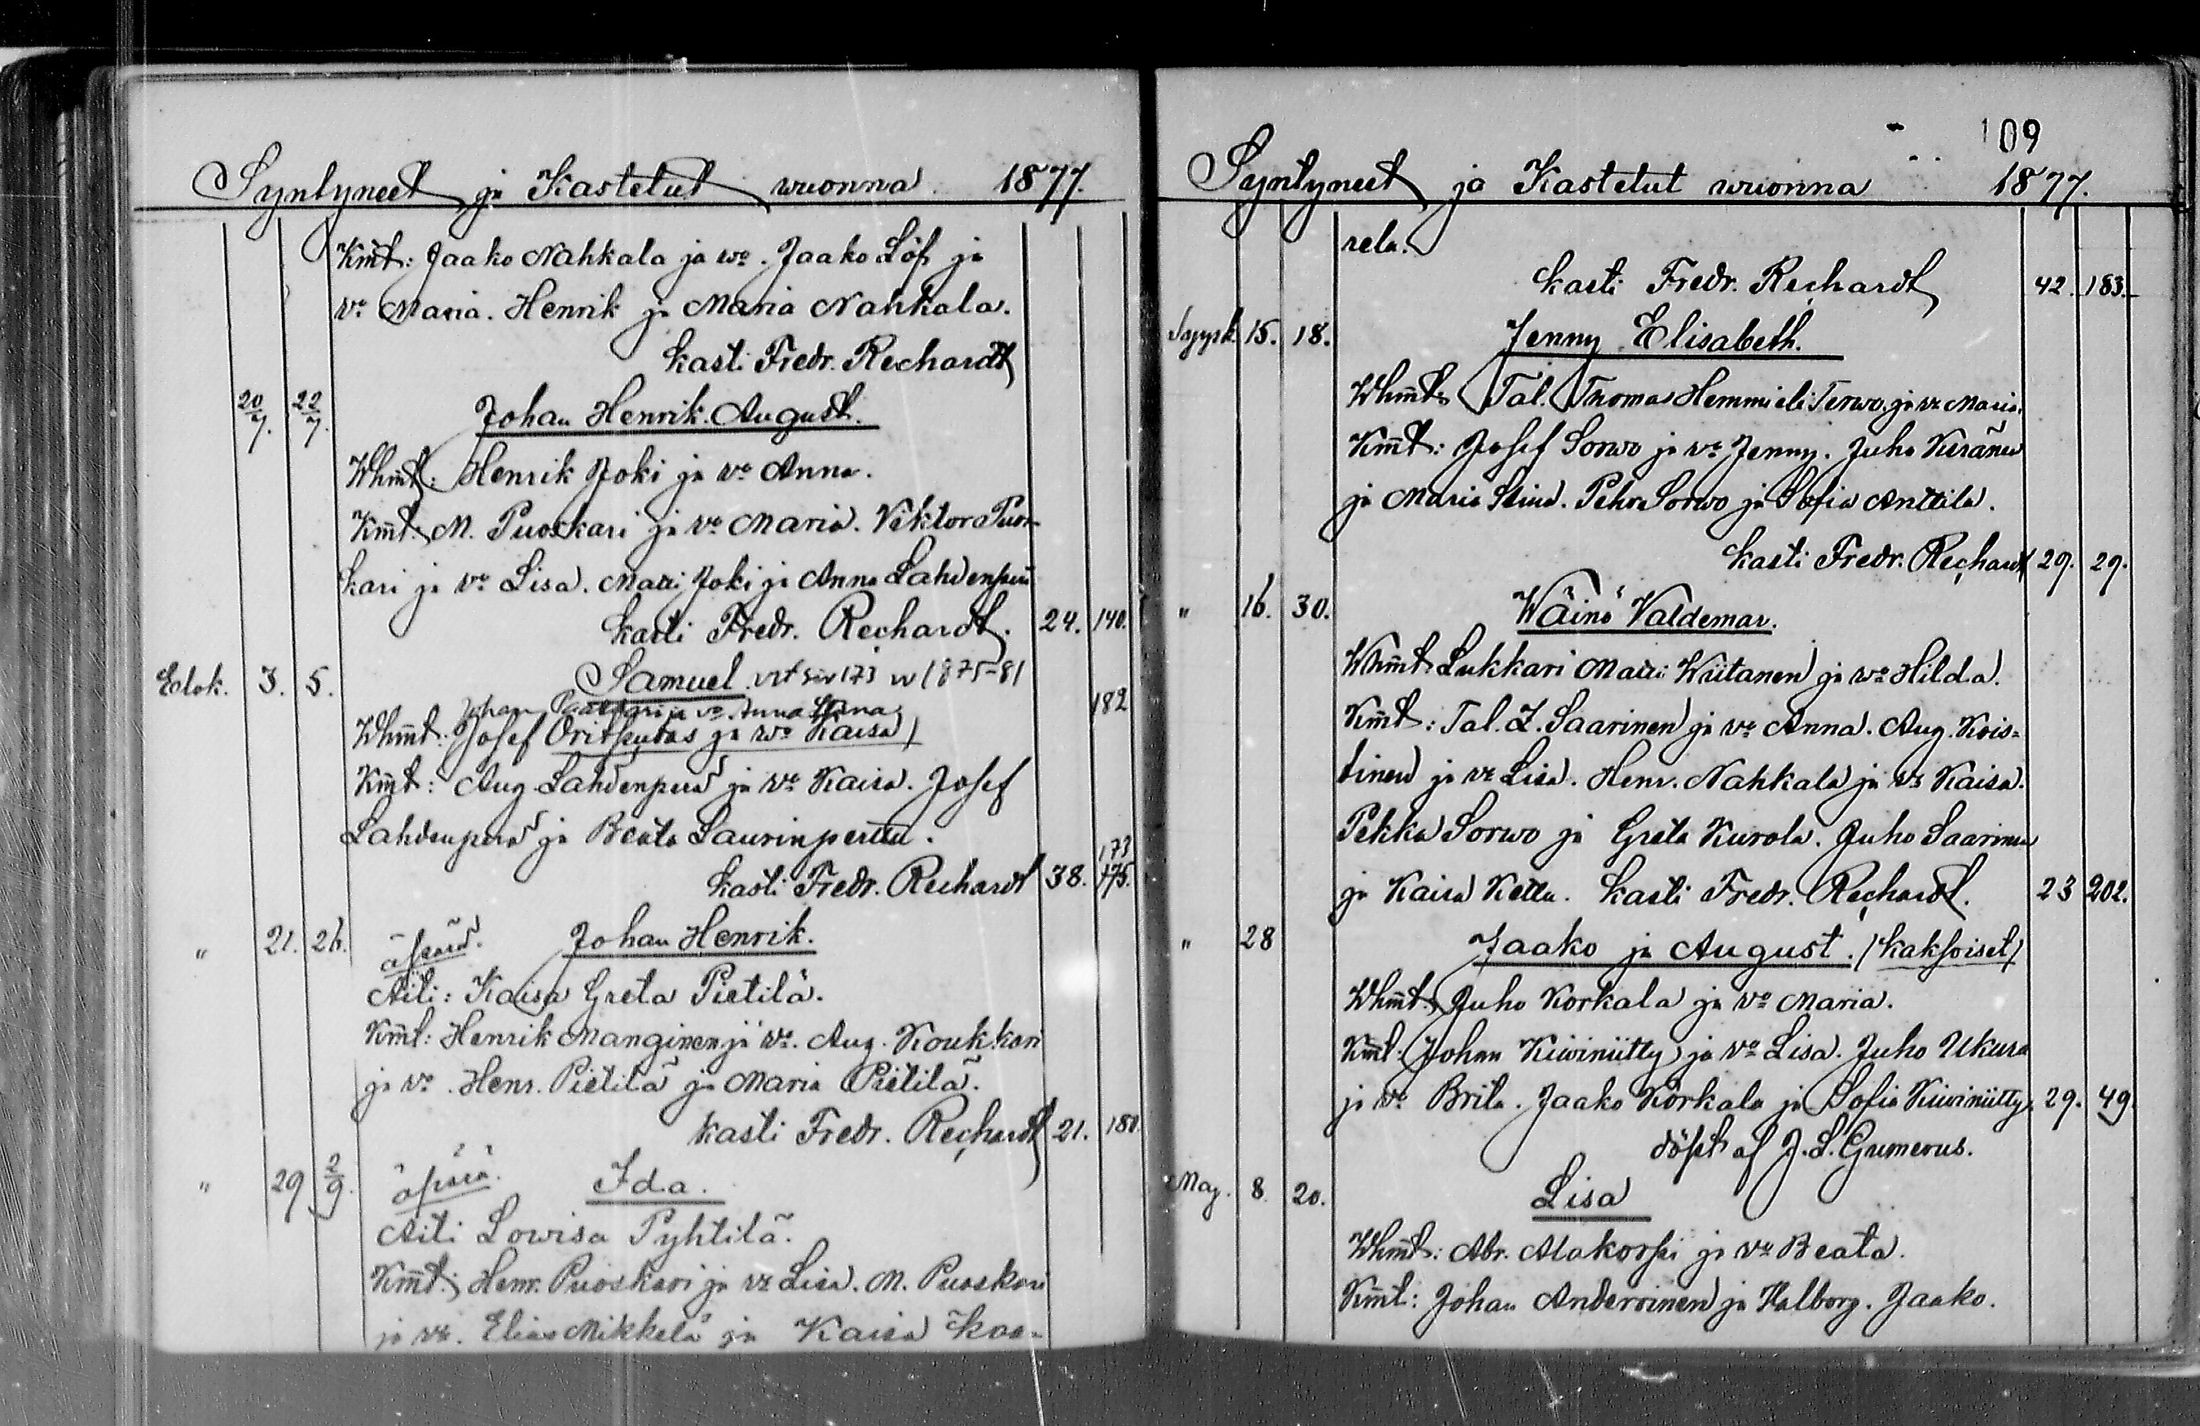 Syntyneet ja Kastetut wuonna 1877.
Kmt: Jaako Nahkala ja wo. Jaako Löf ja
vo Maria. Henrik ja Maria Nahkala.
kasti Fredr. Rechardt
20/7. 22/7. Johan Henrik August.
Whmt: Henrik Joki ja vo Anna.
Kmt. M. Puoskari ja vo Maria. Viktor Puos-
kari ja vo Lisa. Matti Joki ja Anna Lahdenperä
kasti Fredr. Rechardt. 24. 140.
Elok. 3. 5. Samuel. siv 173 w 1875-81
Johan ja vo. Anna 182
Whmt: Josef ja wo Kaisa
Kmt: Aug. Lahdenperä ja vo Kaisa. Josef
Lahdenperä ja Beata
173
kasti Fredr. Rechardt 38. 175.
" 21. 26. äpärä. Johan Henrik.
Äiti: Kaisa Greta Pietilä.
Kmt: Henrik Manginen ja vo. Aug. Koukkari
ja vo. Henr. Pietilä ja Maria Pietilä.
kasti Fredr. Rechardt 21. 180.
" 29 2/9. äpärä. Ida.
Äiti Lowisa Pyhtilä.
Kmt: Henr. Puoskari ja vo Lisa. M. Puoskari
ja vo. Elias Mikkelä ja Kaisa kaa-
109
Syntyneet ja Kastetut wuonna 1877.
rela.
kasti Fredr. Rechardt 42. 183.
Syysk. 15. 18. Jenny Elisabeth.
Whmt Tal. Thomas Terwo ja vo Maria.
Kmt: Josef Sorwo ja vo Jenny. Juho Keränen
ja Maria Stina. Pehr Sorwo ja Sofia Anttila.
kasti Fredr. Rechardt 29. 29.
" 16. 30. Wäinö Valdemar.
Whmt Lukkari Matti Wiitanen ja wo Hilda.
Kmt: Tal. Z. Saarinen ja vo Anna. Aug. Kois-
tinen ja vo Lisa. Henr. Nahkala ja vo Kaisa.
Pekka Sorwo ja Greta Kurola. Juho Saarinen
ja Kaisa Kettu. kasti Fredr. Rechardt. 23 202.
" 28 Jaako ja August. (kaksoiset)
Whmt. Juho Korkala ja vo Maria.
Kmt: Johan Kiwiniitty ja vo Lisa. Juho Ukura
ja vo Brita. Jaako Korkala ja Sofia Kiwiniitty 29. 49
döpt af J. L. Gumerus.
Maj. 8. 20. Lisa
Whmt: Abr. Alakorpi ja vo Beata.
Kmt: Johan ja Walborg. Jaako.